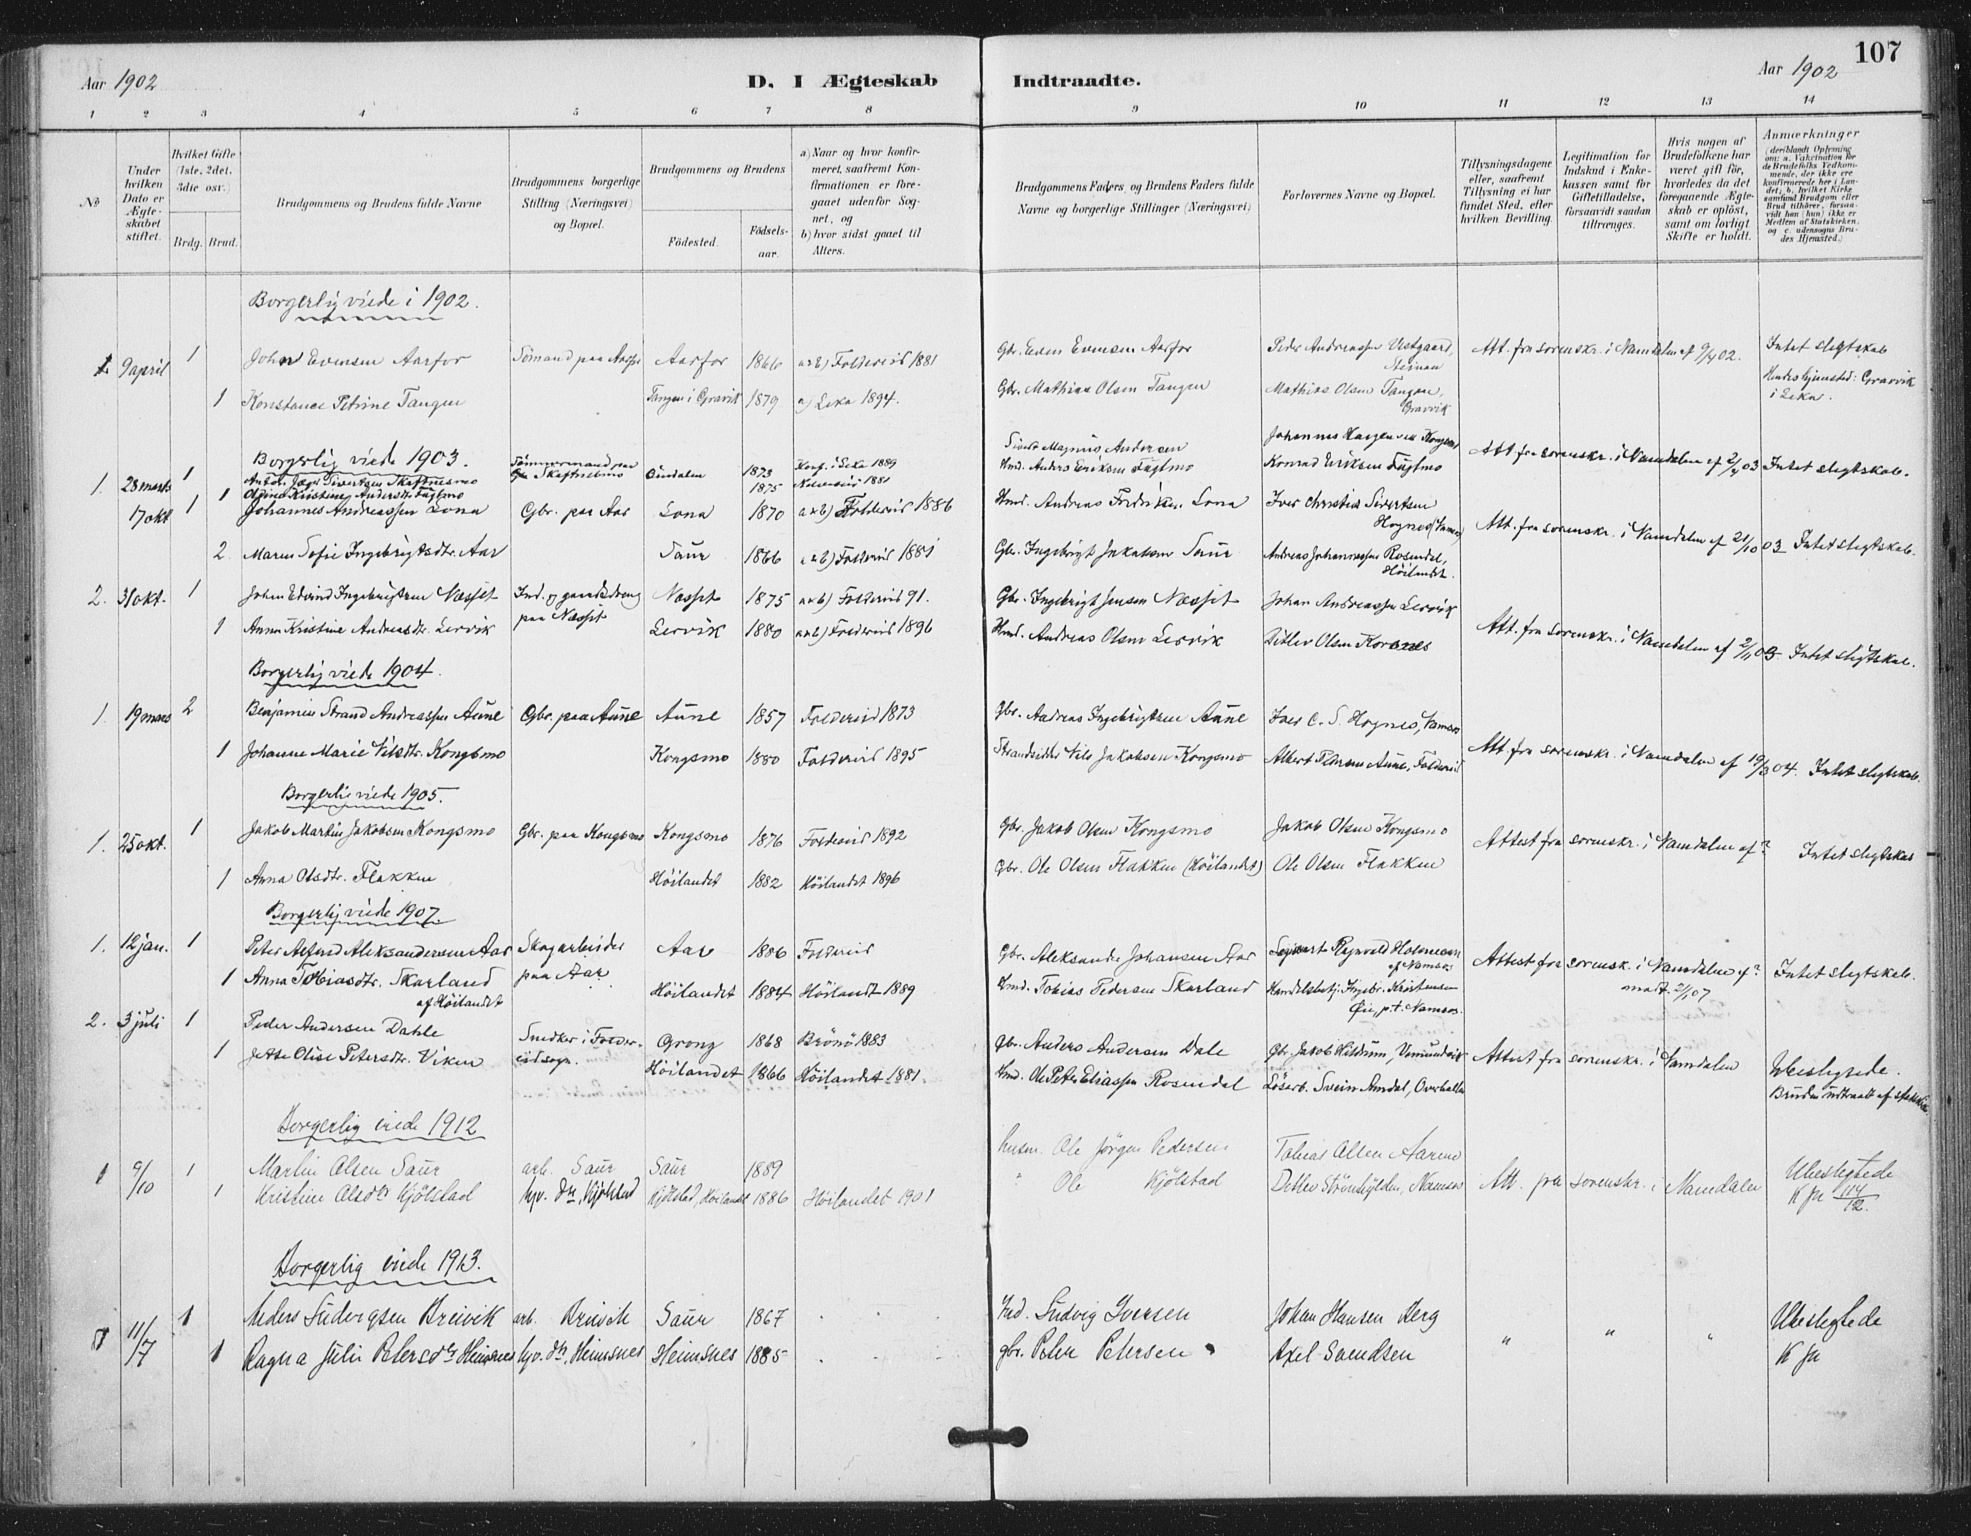 107
Aar 1902
D. I Ægteskab Indtraadte.
Aar 1902
1 2 3 4 5 6 7 8 9 10 11 12 13 14
No
Under hvilken Dato er Ægteskabet stiftet.
Hvilket Gifte (1ste, 2det, 3die osv.)
Brdg. Brud.
Brudgommens og Brudens fulde Navne
Brudgommens borgerlige Stilling (Næringsvei) og Bopæl.
Brudgommens og Brudens
Fødested.
Fødselsaar.
a) Naar og hvor konfirmeret, saafremt Konfirmationen er foregaaet udenfor Sognet, og
b) hvor sidst gaaet til Alters.
Brudgommens Faders og Brudens Faders fulde Navne og borgerlige Stillinger (Næringsvei)
Forlovernes Navne og Bopæl.
Tillysningsdagene eller, saafremt Tillysning ei har fundet Sted, efter hvilken Bevilling.
Legitimation for Indskud i Enkekassen samt for Giftetilladelse, forsaavidt saadan tiltrænges.
Hvis nogen af Brudefolkene har været gift før, hvorledes da det foregaaende Ægteskab er opløst, samt om lovligt Skifte er holdt.
Anmærkninger
(deriblandt Oplysning om: a. Vakcination for de Brudefolks Vedkommende, der ikke ere konfirmerede her i Landet; b. hvilket Kirkesamfund Brudgom eller Brud tilhører, forsaavidt han (hun) ikke er Medlem af Statskirken, og c. udensogns Brudes Hjemsted.)
Borgerlig viede i 1902.
1. 9 april 1 John Evensen Aarfor Sømand paa Aarfor Aarfor 1866 a&b) Foldereid 1881 Gbr. Even Evensen Aarfor Peder Andreassen Ustgaard, Steinan Att. fra sorenskr. i Namdalen af 9/4 02. Intet slegtskab
1 Konstance Petrine Tangen Tangen i Gravvik 1879 a) Leka 1894. Gbr. Mathias Olsen Tangen Mathias Olsen Tangen, Gravvik Hendes hjemsted: Gravvik i Leka.
Borgerlig viede 1903.
1. 28 marts 1 Sivertsen Skaftnesmo Tømmermand paa Skaftnesmo Bindalen 1873 Konf. i Leka 1889 Sivert Magnus Andersen Johannes Hansen Kongsmo Att. fra sorenskr. i Namdalen af 2/4 03 Intet slegtskab.
1 Oline Kristine Andersdtr. Fuglmo 1875 1881 Hmd. Anders Eriksen Fuglmo Konrad Eriksen Fuglmo
17 okt 1 Johannes Andreassen Lona Gbr. paa Aar Lona 1870 a&b) Foldereid 1886 Hmd. Andreas Fredriksen Lona Iver Christid Sivertsen Hognes, Namsos Att. fra sorenskr. i Namdalen af 21/10 03 Intet slegtskab.
2 Maren Sofie Ingebrigtsdtr. Aar Saur 1866 a&b) Foldereid 1881 Gbr. Ingebrigt Jakobsen Saur Andreas Johannessen Rosendal, Höilandet.
2. 31 okt. 1 Johan Edvind Ingebrigtsen Næsset Ind. og gaardsdreng paa Næsset Næsset 1875 a&b) Foldereid 91. Gbr. Ingebrigt Jensen Næsset Johan Andreassen Lervik Att. fra sorenskr. i Namdalen af 2/11 03 Intet slegtskab.
1 Anna Kristine Andreasdtr. Lervik Lervik 1880 a&b) Foldereid 1896 Hmd. Andreas Olsen Lervik Ditlev Olsen Korsnes
Borgerlig viede 1904.
1. 19 mars 2 Benjamin Strand Andreassen Aune Gbr. paa Aune Aune 1857 Foldereid 1873 Gbr. Andreas Ingebrigtsen Aune Iver C. S. Hognes, Namsos Att. fra sorenskr. i Namdalen af 19/3 04. Intet slegtskab.
1 Johanne Marie Nilsdtr. Kongsmo Kongsmo 1880 Foldereid 1895 Strandsidder Nils Jakobsen Kongsmo Albert Aune, Foldereid
Borgerlig viede 1905.
1. 25 okt. 1 Jakob Martin Jakobsen Kongsmo Gbr. paa Kongsmo Kongsmo 1876 Foldereid 1892 Gbr. Jakob Olsen Kongsmo Jakob Olsen Kongsmo Attest fra sorenskr. i Namdalen af? Intet slegtskab
1 Anna Olsdtr. Flakken Höilandet 1882 Höilandet 1896 Gbr. Ole Olsen Flakken (Höilandet) Ole Olsen Flakken
Borgerlig viede 1907.
1. 12 jan. 1 Peter Alfred Aleksandersen Aar Skogarbeider paa Aar Aar 1886 Foldereid Gbr. Aleksander Johansen Aar Reinvold Holsmann af Namsos Attest fra sorensk. i Namdalen af? modt. 2/1 07 Intet slegtskab.
1 Anna Tobiasdtr. Skarland af Höilandet Höilandet 1884 Höilandet 1889 Hmd. Tobias Pedersen Skarland Handelsbetj. Ingebr. Kristensen Öie, p.t. Namsos.
2. 3 juli 1 Peder Andersen Dahle Snedker i Foldereid sogn. Grong 1868 Brönö 1883 Gbr. Anders Andersen Dale Gbr. Jakob Hildrum, Vemundvik Attest fra sorenskr. i Namdalen Ubeslegtede.
1 Jette Olise Petersdtr. Viken Höilandet 1866 Höilandet 1881. Hmd. Ole Peter Eliassen Rosendal Löserb. Svein Amdal, Overhalla Bruden udtraadt af statskirken
Borgerlig viede 1912
1 9/10 1 Martin Olsen Saur arb. Saur Saur 1889 husm. Ole Jörgen Pedersen Tobias Olsen Aarmo Att. fra sorenskr. i Namdalen Ubeslegtede
1 Kristine Olsdtr Kjölstad hjv. dtr, Kjölstad Kjölstad, Höilandet 1886 Höilandet 1901 " Ole Kjölstad Detlev Strömhylden, Namsos K ja 114/12.
Borgerlig viede 1913.
1 11/7 1 Anders Ludvigsen Breivik arb. Breivik Saur 1867 Ind. Ludvig Iversen Johan Hansen Berg " " " Ubeslegtede
1 Ragna Julie Petersdtr Heimsnes hjv. dtr, Heimsnes Heimsnes 1885 gbr. Peter Petersen Axel Svendsen K ja